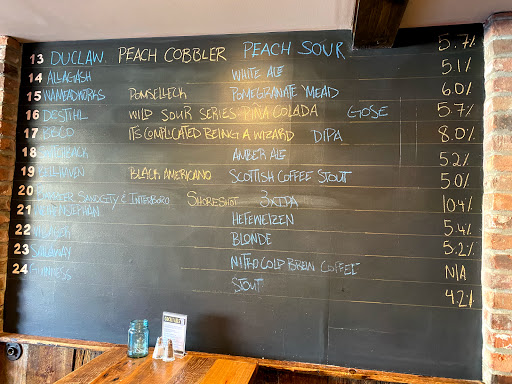 13 DUCLAW PEACH COBBLER PEACH SOUR 5.7%
14 ALLAGASH WHITE ALE 5.1%
15 W.A.MEADWORKS POMSELLECK POMEGRANATE MEAD 6.0%
16 DESTIHL WILD SOUR SERIES: PIÑA COLADA GOSE 5.7%
17 BBCO IT'S COMPLICATED BEING A WIZARD DIPA 8.0%
18 AMBER ALE 5.2%
19 BELHAVEN BLACK AMERICANO SCOTTISH COFFEE STOUT 5.0%
20 SIXPOINT & INTERBORO SHORESHOT 3XIPA 10.4%
21 WEIHENSTEPHAN HEFEWEIZEN 5.4%
22 BLONDE 5.2%
23 NITRO COLD BREW COFFEE N/A
24 GUINNESS STOUT 4.2%